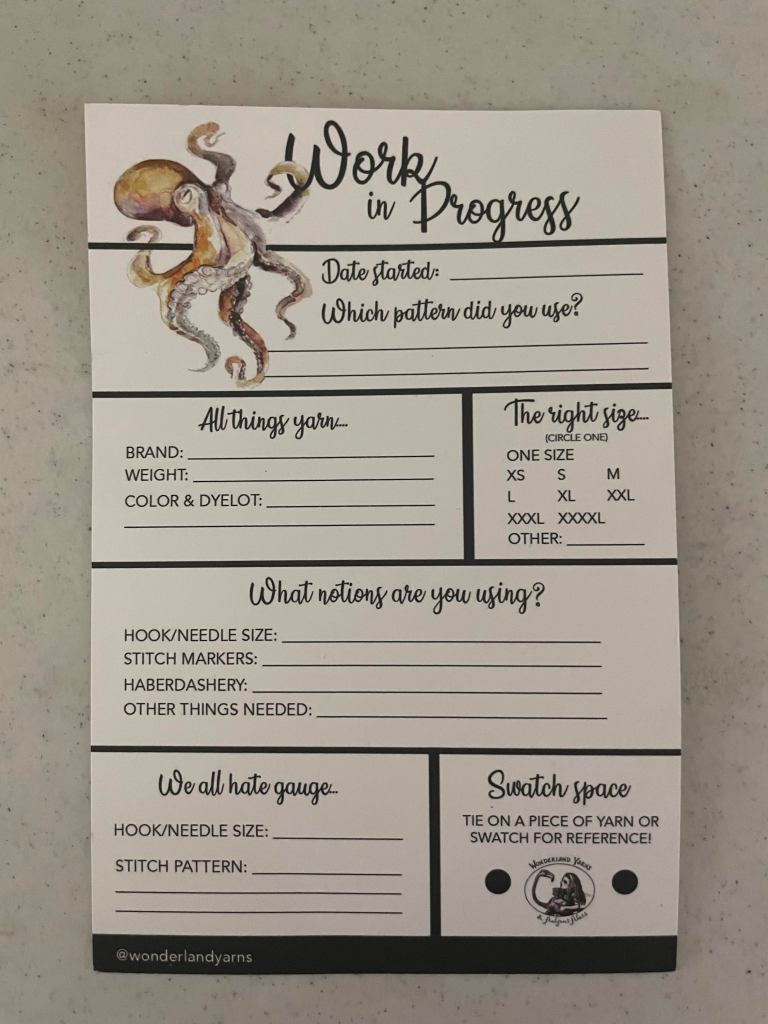 Work
in Progress
Date started:
Which pattern did you use?
All things yarn...
BRAND:
WEIGHT:
COLOR & DYELOT:
The right size...
(CIRCLE ONE)
ONE SIZE
XS S M
L XL XXL
XXXL XXXXL
OTHER:
What notions are you using?
HOOK/NEEDLE SIZE:
STITCH MARKERS:
HABERDASHERY:
OTHER THINGS NEEDED:
We all hate gauge...
HOOK/NEEDLE SIZE:
STITCH PATTERN:
Swatch space
TIE ON A PIECE OF YARN OR
SWATCH FOR REFERENCE!
WONDERLAND YARNS
@wonderlandyarns